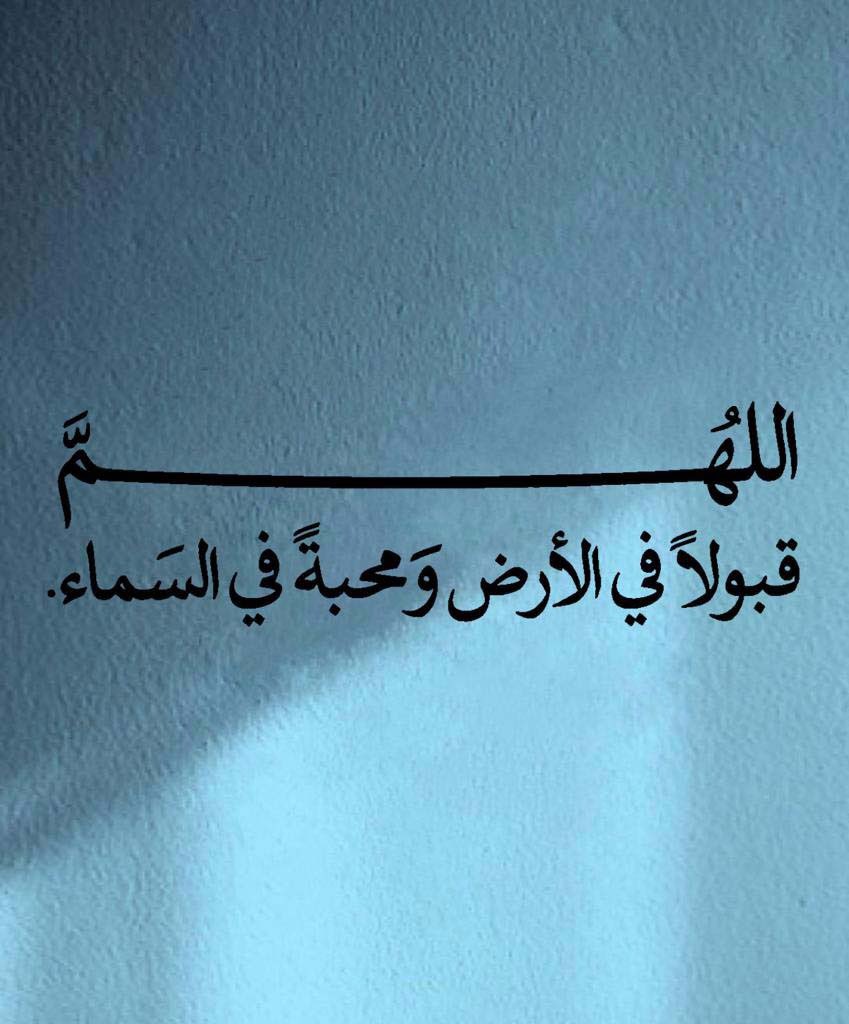 اللهُـــمَّ
قبولاً في الأرض وَمحبةً في السَماء.